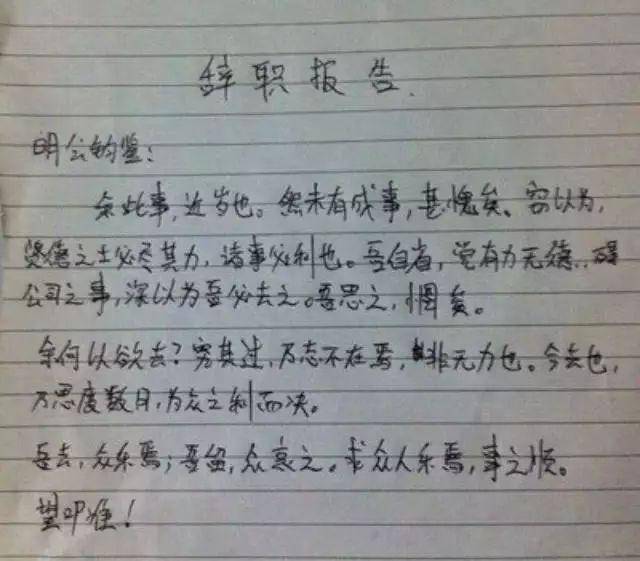 辞职报告.
明公钧鉴:
余此事,近岁也。然未有成事,甚愧矣。窃以为,
贤德之士必尽其力,诸事必利也。吾自省,觉有力无德..碍
公司之事,深以为吾必去之。吾思之,惘矣。
余何以欲去?究其过,乃志不在焉,非无力也。今去也,
乃思度数月,为众之利而决。
吾去,众乐焉;吾留,众哀之。求众人乐焉,事之顺。
望叩准!